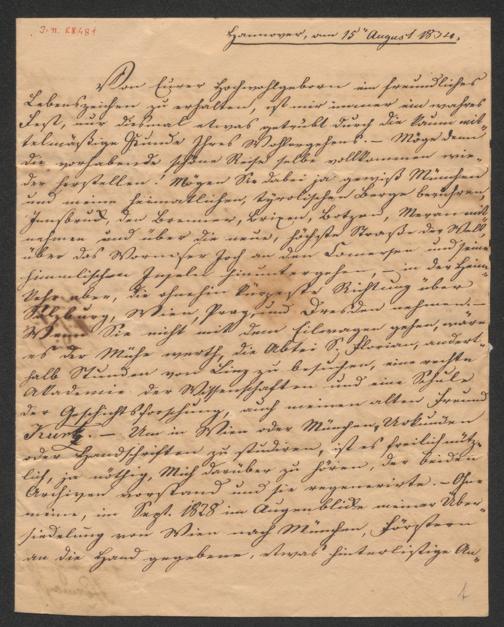 J. N. 68481
Hannover, am 15n August 1834.
Von Eurer Hochwohlgeborn ein freundliches
Lebenszeichen zu erhalten, ist mir immer ein wahres
Fest, nur diesmal etwas getrübt durch die kaum mit-
telmäßige Kunde Ihres Wohlergehens. – Möge denn
die vorhabende schöne Reise selbe vollkommen wie-
der herstellen! Mögen Sie dabei ja gewiß München
und meine heimatlichen, tyrolischen Berge berühren,
Innsbruck, den Brenner, Brixen, Botzen, Meran mit
nehmen und über die neue, höchste Straße der Welt,
über das Wormser Joch an den Comersee und seine
himmlischen Inseln hinuntergehen, – in der Heim-
kehr aber, die ohnehin kürzeste Richtung über
Salzburg, Wien, Prag, und Dresden nehmen. –
Wenn Sie nicht mit dem Eilwagen gehen, wäre
es der Mühe werth, die Abtei St Florian, andert-
halb Stunden von Linz zu besuchen, eine rechte
Akademie der Wissenschaften und eine Schule
der Geschichtsforschung, auch meinen alten Freund
Kurz. – Um in Wien oder München, Urkunden
oder Handschriften zu studieren, ist es freilich nütz-
lich, ja nöthig, mich darüber zu hören, der beiden
Archiven vorstand und sie regenerirte. –
meine, im Sept. 1828 im Augenblicke meiner Über-
siedelung von Wien nach München, Förstern
an die Hand gegebene, etwas hinterlistige An-
1